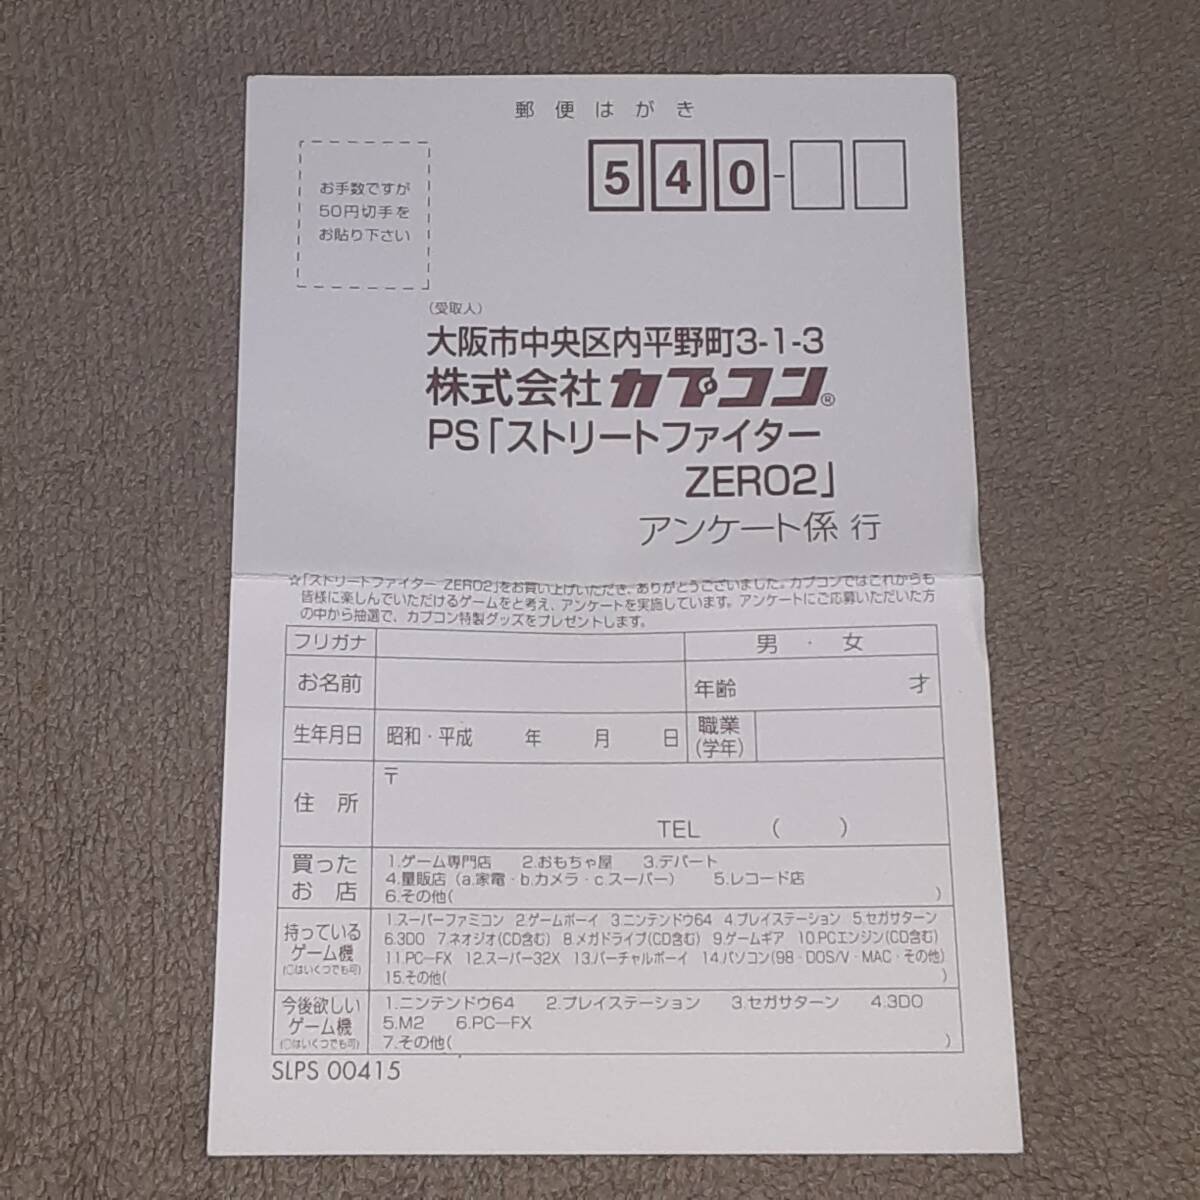 郵便はがき
お手数ですが
50円切手を
お貼り下さい
540-
(受取人)
大阪市中央区内平野町3-1-3
株式会社 カプコン®
PS「ストリートファイター
ZERO2」
アンケート係 行
☆「ストリートファイター ZERO2」をお買い上げいただき、ありがとうございました。カプコンではこれからも
皆様に楽しんでいただけるゲームをと考え、アンケートを実施しています。アンケートにご応募いただいた方
の中から抽選で、カプコン特製グッズをプレゼントします。
フリガナ 男・女
お名前 年齢 才
生年月日 昭和・平成 年 月 日 職業
(学年)
住所 〒
TEL ( )
買った
お店
1.ゲーム専門店 2.おもちゃ屋 3.デパート
4.量販店(a.家電・b.カメラ・c.スーパー) 5.レコード店
6.その他( )
持っている
ゲーム機
(○はいくつでも可)
1.スーパーファミコン 2.ゲームボーイ 3.ニンテンドウ64 4.プレイステーション 5.セガサターン
6.3DO 7.ネオジオ(CD含む) 8.メガドライブ(CD含む) 9.ゲームギア 10.PCエンジン(CD含む)
11.PC-FX 12.スーパー32X 13.バーチャルボーイ 14.パソコン(98・DOS/V・MAC・その他)
15.その他( )
今後欲しい
ゲーム機
(○はいくつでも可)
1.ニンテンドウ64 2.プレイステーション 3.セガサターン 4.3DO
5.M2 6.PC-FX
7.その他( )
SLPS 00415